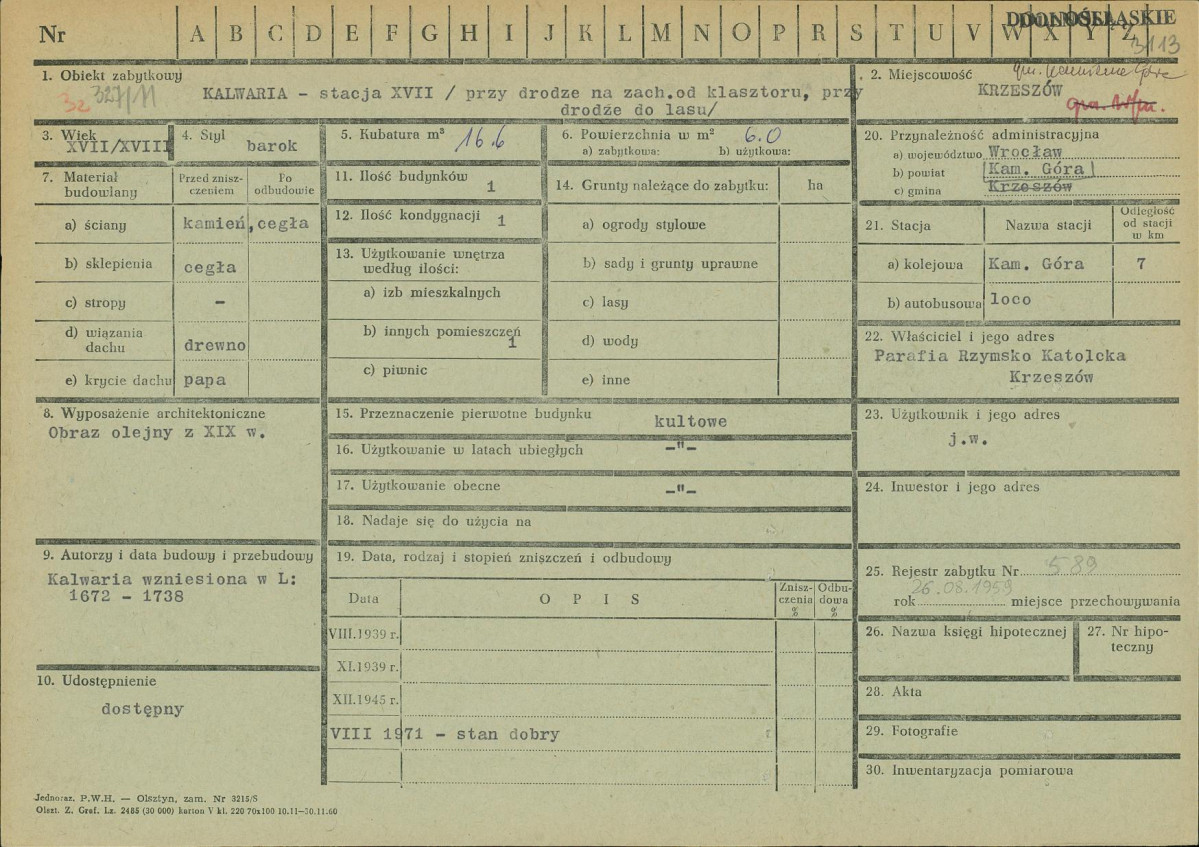 Nr A B C D E F G H I J K L M N O P R S T U V W X Y Z
DOLNOŚLĄSKIE
3113
1. Obiekt zabytkowy
32 327/11
KALWARIA - stacja XVII / przy drodze na zach.od klasztoru, przy
drodże do lasu/
2. Miejscowość
gm. Kamienna Góra
KRZESZÓW
3. Wiek
XVII/XVIII
4. Styl
barok
5. Kubatura m³ 16.6
6. Powierzchnia w m² 6.0
a) zabytkowa: b) użytkowa:
7. Materiał budowlany
Przed zniszczeniem
Po odbudowie
a) ściany kamień,cegła
b) sklepienia cegła
c) stropy -
d) wiązania dachu drewno
e) krycie dachu papa
8. Wyposażenie architektoniczne
Obraz olejny z XIX w.
9. Autorzy i data budowy i przebudowy
Kalwaria wzniesiona w L:
1672 - 1738
10. Udostępnienie
dostępny
11. Ilość budynków 1
12. Ilość kondygnacji 1
13. Użytkowanie wnętrza
według ilości:
a) izb mieszkalnych
b) innych pomieszczeń 1
c) piwnic
14. Grunty należące do zabytku: ha
a) ogrody stylowe
b) sady i grunty uprawne
c) lasy
d) wody
e) inne
15. Przeznaczenie pierwotne budynku kultowe
16. Użytkowanie w latach ubiegłych -"-
17. Użytkowanie obecne -"-
18. Nadaje się do użycia na
19. Data, rodzaj i stopień zniszczeń i odbudowy
Data OPIS Zniszczenia % Odbudowa %
VIII.1939 r.
XI.1939 r.
XII.1945 r.
VIII 1971 - stan dobry
20. Przynależność administracyjna
a) województwo Wrocław
b) powiat Kam. Góra
c) gmina Krzeszów
21. Stacja Nazwa stacji Odległość od stacji w km
a) kolejowa Kam. Góra 7
b) autobusowa loco
22. Właściciel i jego adres
Parafia Rzymsko Katolcka
Krzeszów
23. Użytkownik i jego adres
j.w.
24. Inwestor i jego adres
25. Rejestr zabytku Nr 589
26.08.1959
rok miejsce przechowywania
26. Nazwa księgi hipotecznej
27. Nr hipoteczny
28. Akta
29. Fotografie
30. Inwentaryzacja pomiarowa
Jednoraz. P.W.H. — Olsztyn, zam. Nr 3215/S
Olszt. Z. Graf. Lz. 2485 (30 000) karton V kl. 220 70x100 10.11-30.11.60